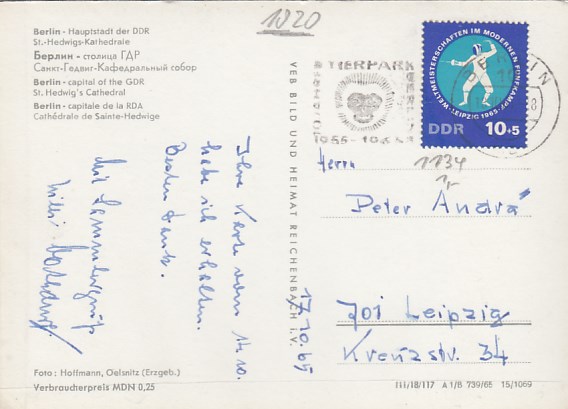 1020
Berlin - Hauptstadt der DDR
St.-Hedwigs-Kathedrale
Берлин - столица ГДР
Санкт-Гедвиг-Кафедральный собор
Berlin - capital of the GDR
St. Hedwig's Cathedral
Berlin - capitale de la RDA
Cathédrale de Sainte-Hedwige
TIERPARK
BERLIN
1955-
WELTMEISTERSCHAFTEN IM MODERNEN FÜNFKAMPF · LEIPZIG 1965
DDR 10+5
BERLIN
8
VEB BILD UND HEIMAT REICHENBACH i. V.
Herrn
1134
Peter André
701 Leipzig
Kreuzstr. 34
17.10.65
Ihre Karte vom 14.10.
habe ich erhalten.
Besten Dank.
Mit Sammlergruß
Willi
Foto: Hoffmann, Oelsnitz (Erzgeb.)
Verbraucherpreis MDN 0,25
III/18/117 A 1/B 739/65 15/1069